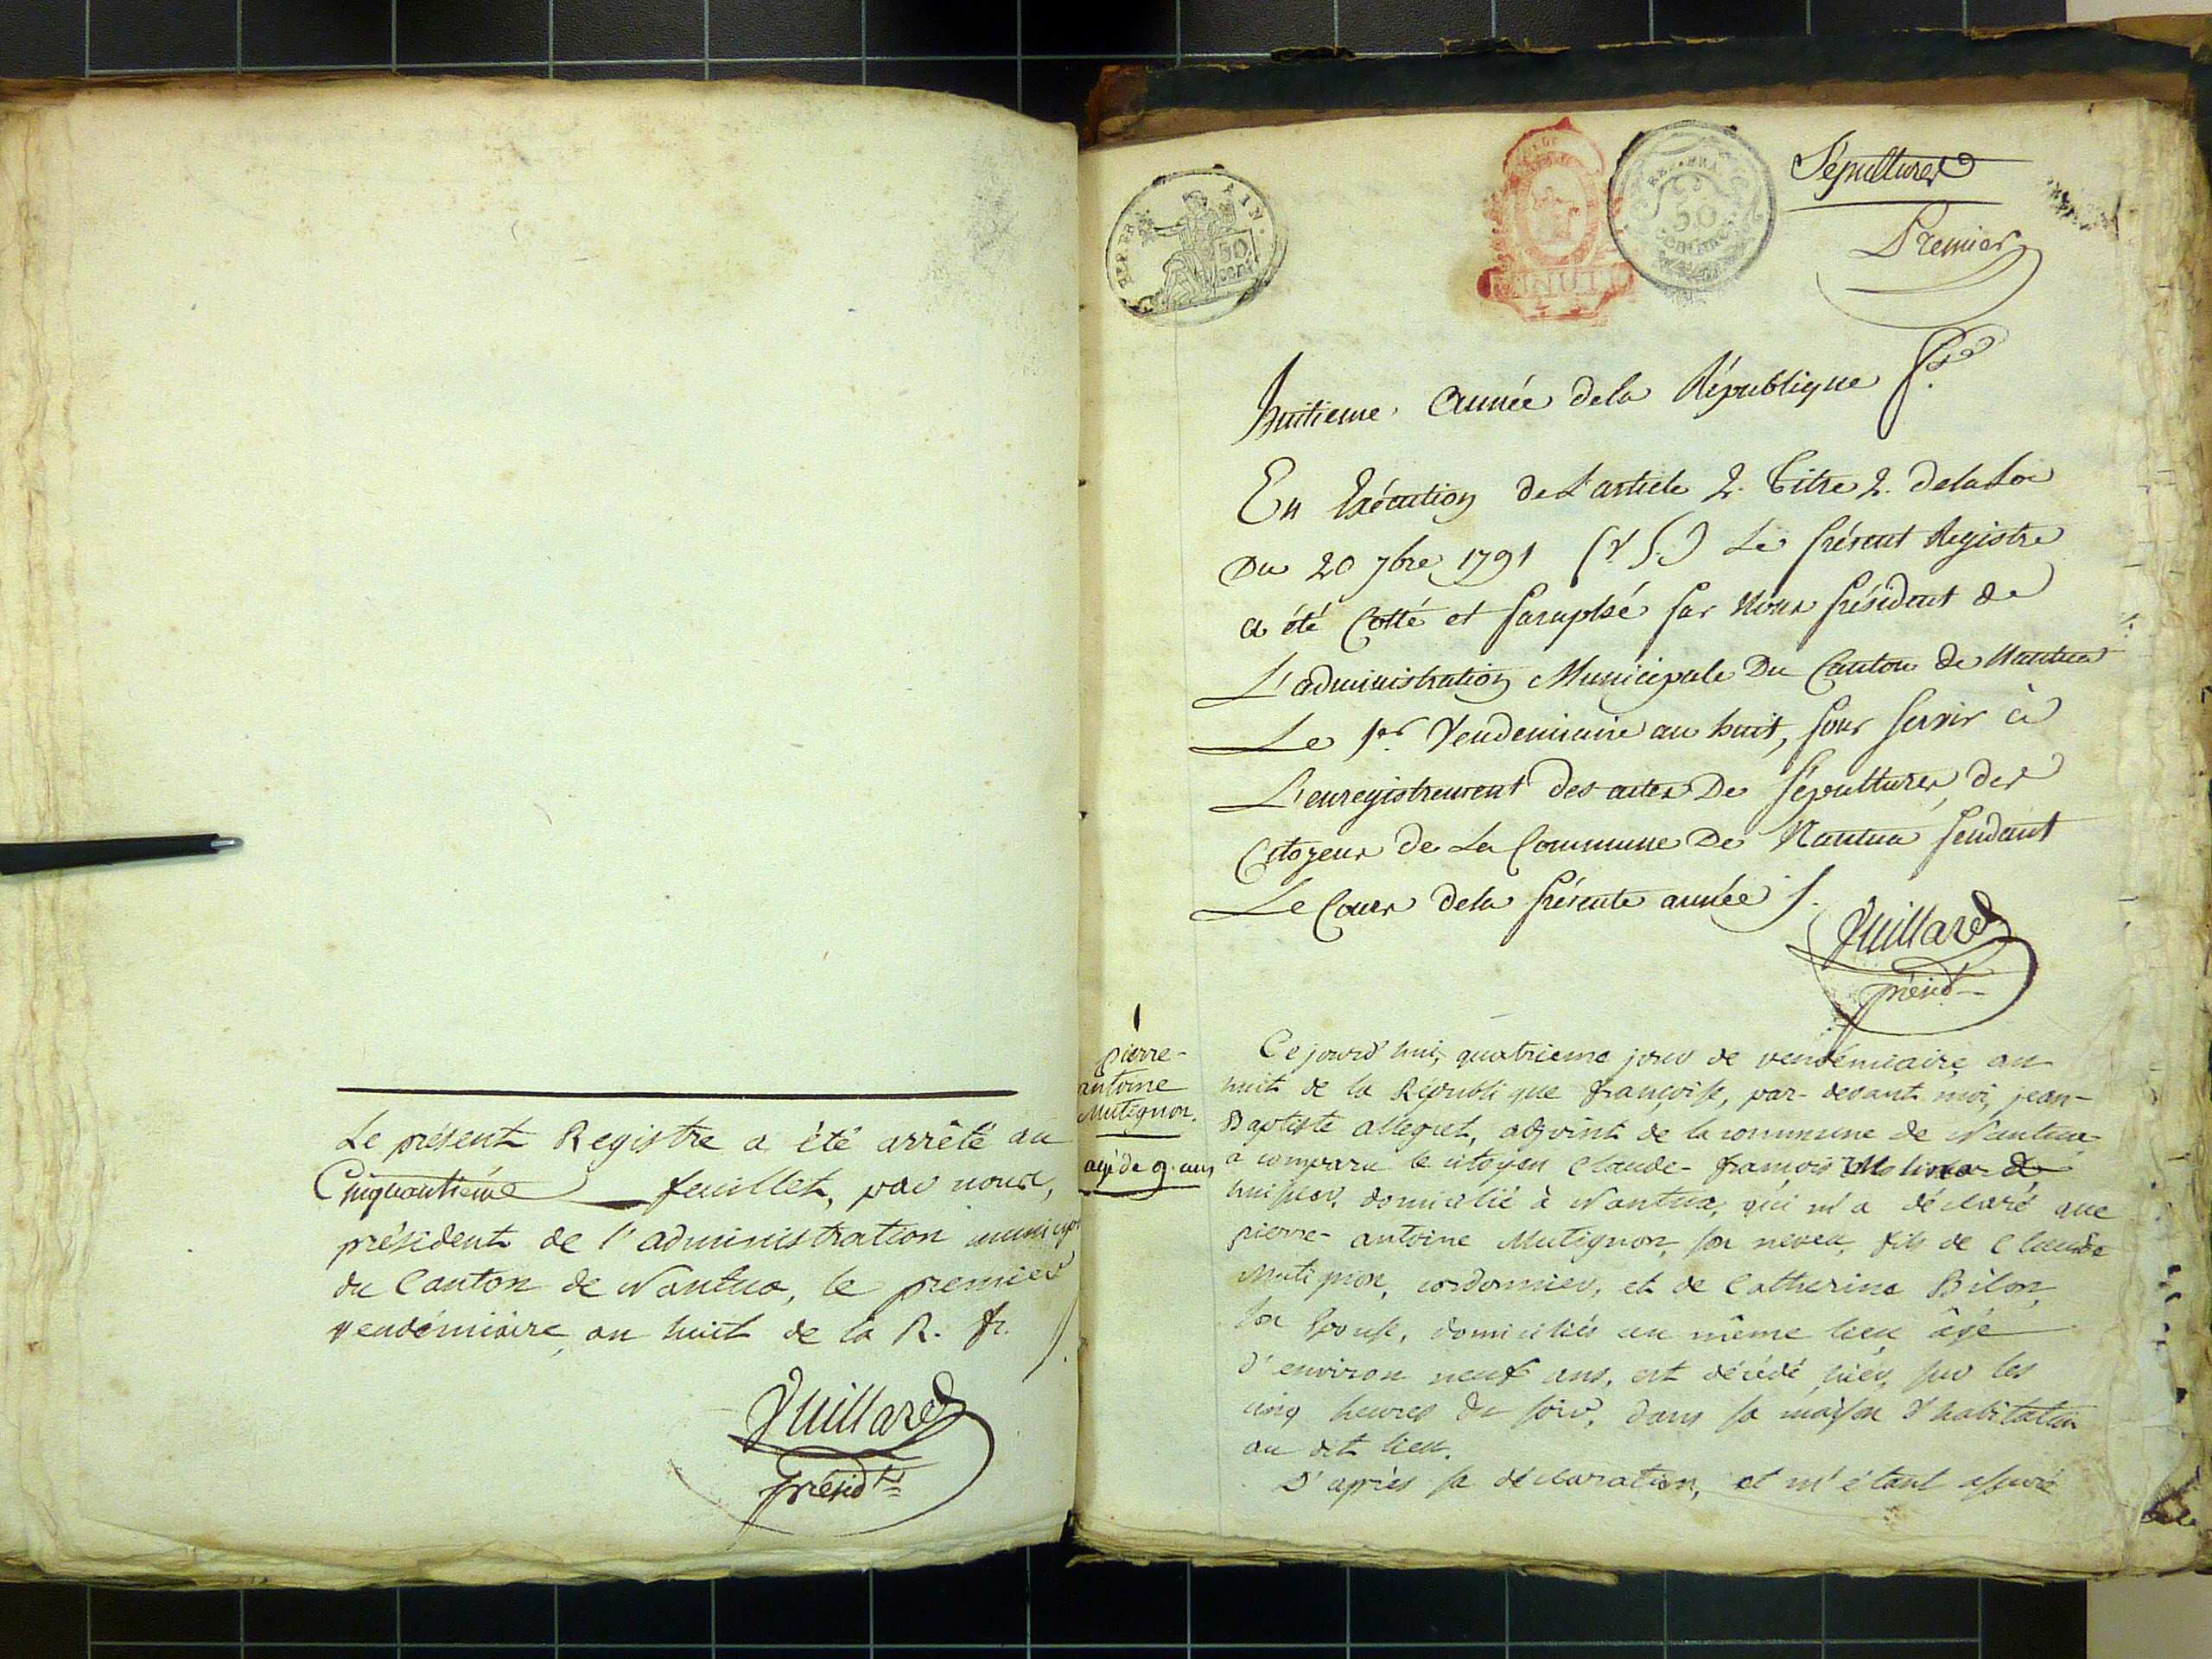 Le présent Registre a été arrêté au
Cinquantiéme feuillet, par nous,
président de l'administration municip
du Canton de Nantua, le premier
vendémiaire, an huit de la R. fr.
Vuillard
présidt
REP. FRA
AIN.
50
cent
REP. FRA
50
centimes
Sépultures
Premier
huitieme année dela République fse
En Exécution de L'article 2. Titre 2. dela Loi
Du 20 7bre 1791 (V S.) Le présent Registre
a été Cotté et paraphé par Nous président de
L'administration Municipale Du Canton de Nantua
Le 1er Vendemiaire an huit, pour servir à
L'enregistrement des actes De Sépultures des
Citoyens de La Commune De Nantua pendant
Le Cours dela présente année
Vuillard
présidt
1
pierre-
antoine
Mutignon.
agé de 9. ans
Ce jourd'hui, quatrieme jour de vendémiaire, an
huit de la République françoise, par-devant moi, jean-
Baptiste allegret, adjoint de la commune de Nantua
a comparu le citoyen Claude-françois
huissier, domicilié à Nantua, qui m'a déclaré que
pierre-antoine Mutignon, son neveu, fils de Claude
Mutignon, cordonnier, et de Catherine Bilon,
son Epouse, domiciliés au même lieu, âgé
d'environ neuf ans, est décédé hier, sur les
cinq heures du soir, dans sa maison d'habitation
au dit lieu.
D'après sa déclaration, et m'étant assuré